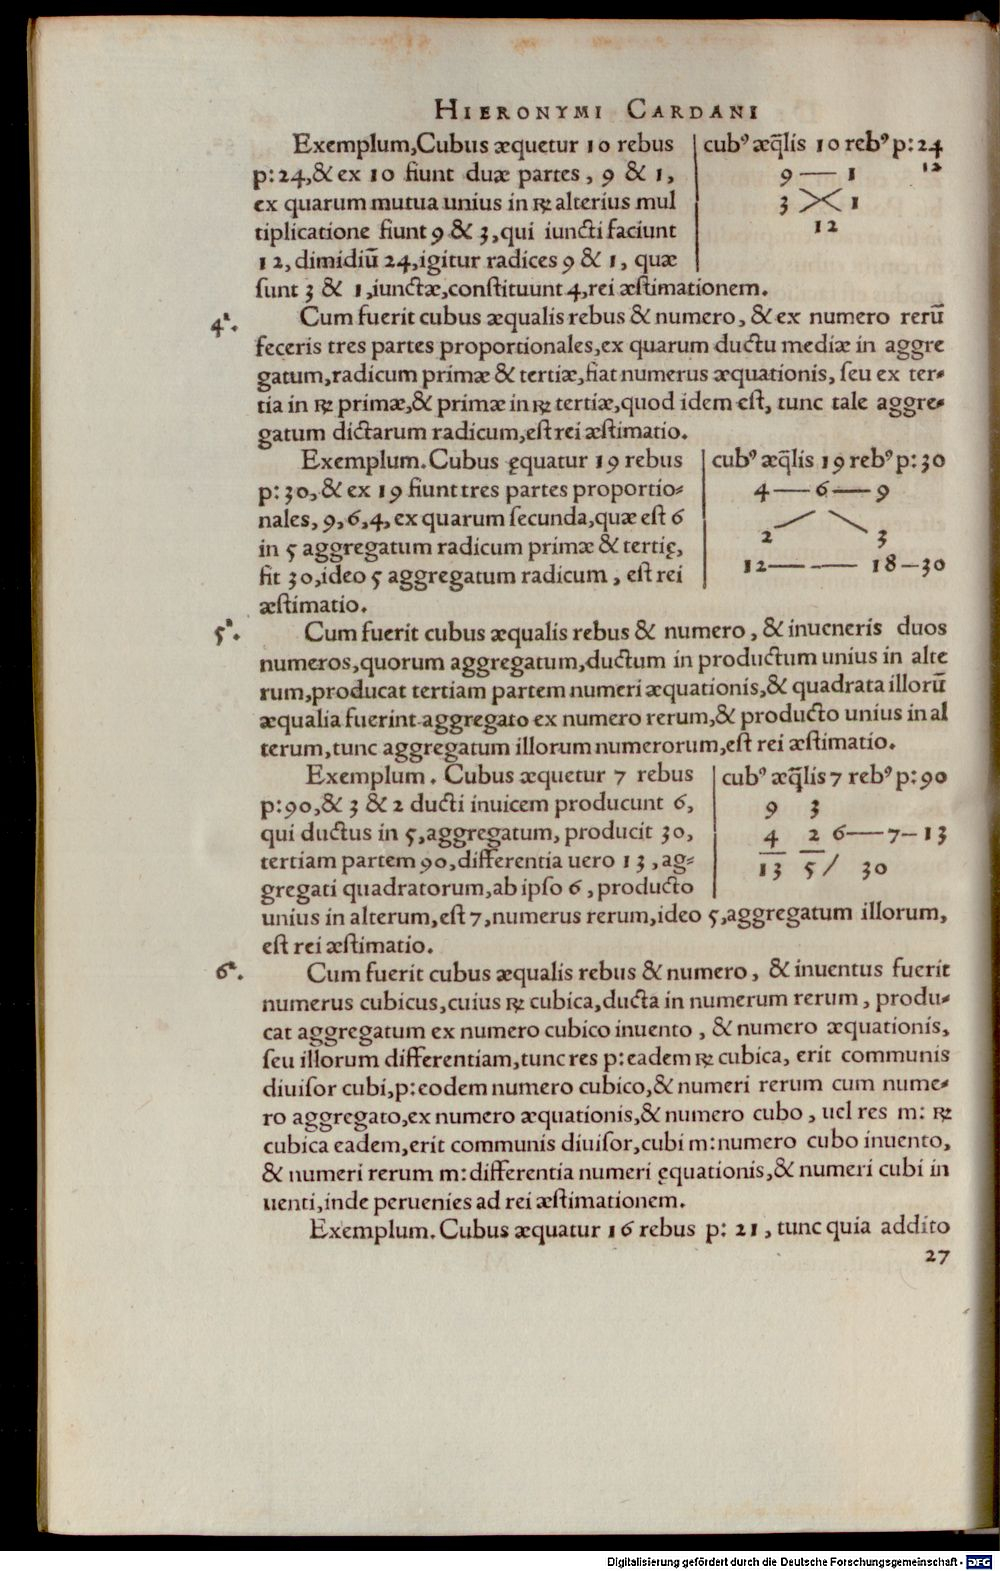 HIERONYMI CARDANI
Exemplum, Cubus æquetur 10 rebus
p: 24, & ex 10 fiunt duæ partes, 9 & 1,
ex quarum mutua unius in ℞ alterius mul
tiplicatione fiunt 9 & 3, qui iuncti faciunt
12, dimidiũ 24, igitur radices 9 & 1, quæ
sunt 3 & 1, iunctæ, constituunt 4, rei æstimationem.
cubꝰ æq̃lis 10 rebꝰ p: 24
12
9 — 1
3 1
12
4ᵃ.
Cum fuerit cubus æqualis rebus & numero, & ex numero rerũ
feceris tres partes proportionales, ex quarum ductu mediæ in aggre
gatum, radicum primæ & tertiæ, fiat numerus æquationis, seu ex ter-
tia in ℞ primæ, & primæ in ℞ tertiæ, quod idem est, tunc tale aggre-
gatum dictarum radicum, est rei æstimatio.
Exemplum. Cubus ęquatur 19 rebus
p: 30, & ex 19 fiunt tres partes proportio-
nales, 9, 6, 4, ex quarum secunda, quæ est 6
in 5 aggregatum radicum primæ & tertię,
fit 30, ideo 5 aggregatum radicum, est rei
æstimatio.
cubꝰ æq̃lis 19 rebꝰ p: 30
4 — 6 — 9
2 3
12 — — 18 — 30
5ᵃ.
Cum fuerit cubus æqualis rebus & numero, & inueneris duos
numeros, quorum aggregatum, ductum in productum unius in alte
rum, producat tertiam partem numeri æquationis, & quadrata illorũ
æqualia fuerint aggregato ex numero rerum, & producto unius in al
terum, tunc aggregatum illorum numerorum, est rei æstimatio.
Exemplum. Cubus æquetur 7 rebus
p: 90, & 3 & 2 ducti inuicem producunt 6,
qui ductus in 5, aggregatum, producit 30,
tertiam partem 90, differentia uero 13, ag-
gregati quadratorum, ab ipso 6, producto
unius in alterum, est 7, numerus rerum, ideo 5, aggregatum illorum,
est rei æstimatio.
cubꝰ æq̃lis 7 rebꝰ p: 90
9 3
4 2 6 — 7 — 13
13 5 / 30
6ᵃ.
Cum fuerit cubus æqualis rebus & numero, & inuentus fuerit
numerus cubicus, cuius ℞ cubica, ducta in numerum rerum, produ-
cat aggregatum ex numero cubico inuento, & numero æquationis,
seu illorum differentiam, tunc res p: eadem ℞ cubica, erit communis
diuisor cubi, p: eodem numero cubico, & numeri rerum cum nume-
ro aggregato, ex numero æquationis, & numero cubo, uel res m: ℞
cubica eadem, erit communis diuisor, cubi m: numero cubo inuento,
& numeri rerum m: differentia numeri ęquationis, & numeri cubi in
uenti, inde peruenies ad rei æstimationem.
Exemplum. Cubus æquatur 16 rebus p: 21, tunc quia addito
27
Digitalisierung gefördert durch die Deutsche Forschungsgemeinschaft - DFG